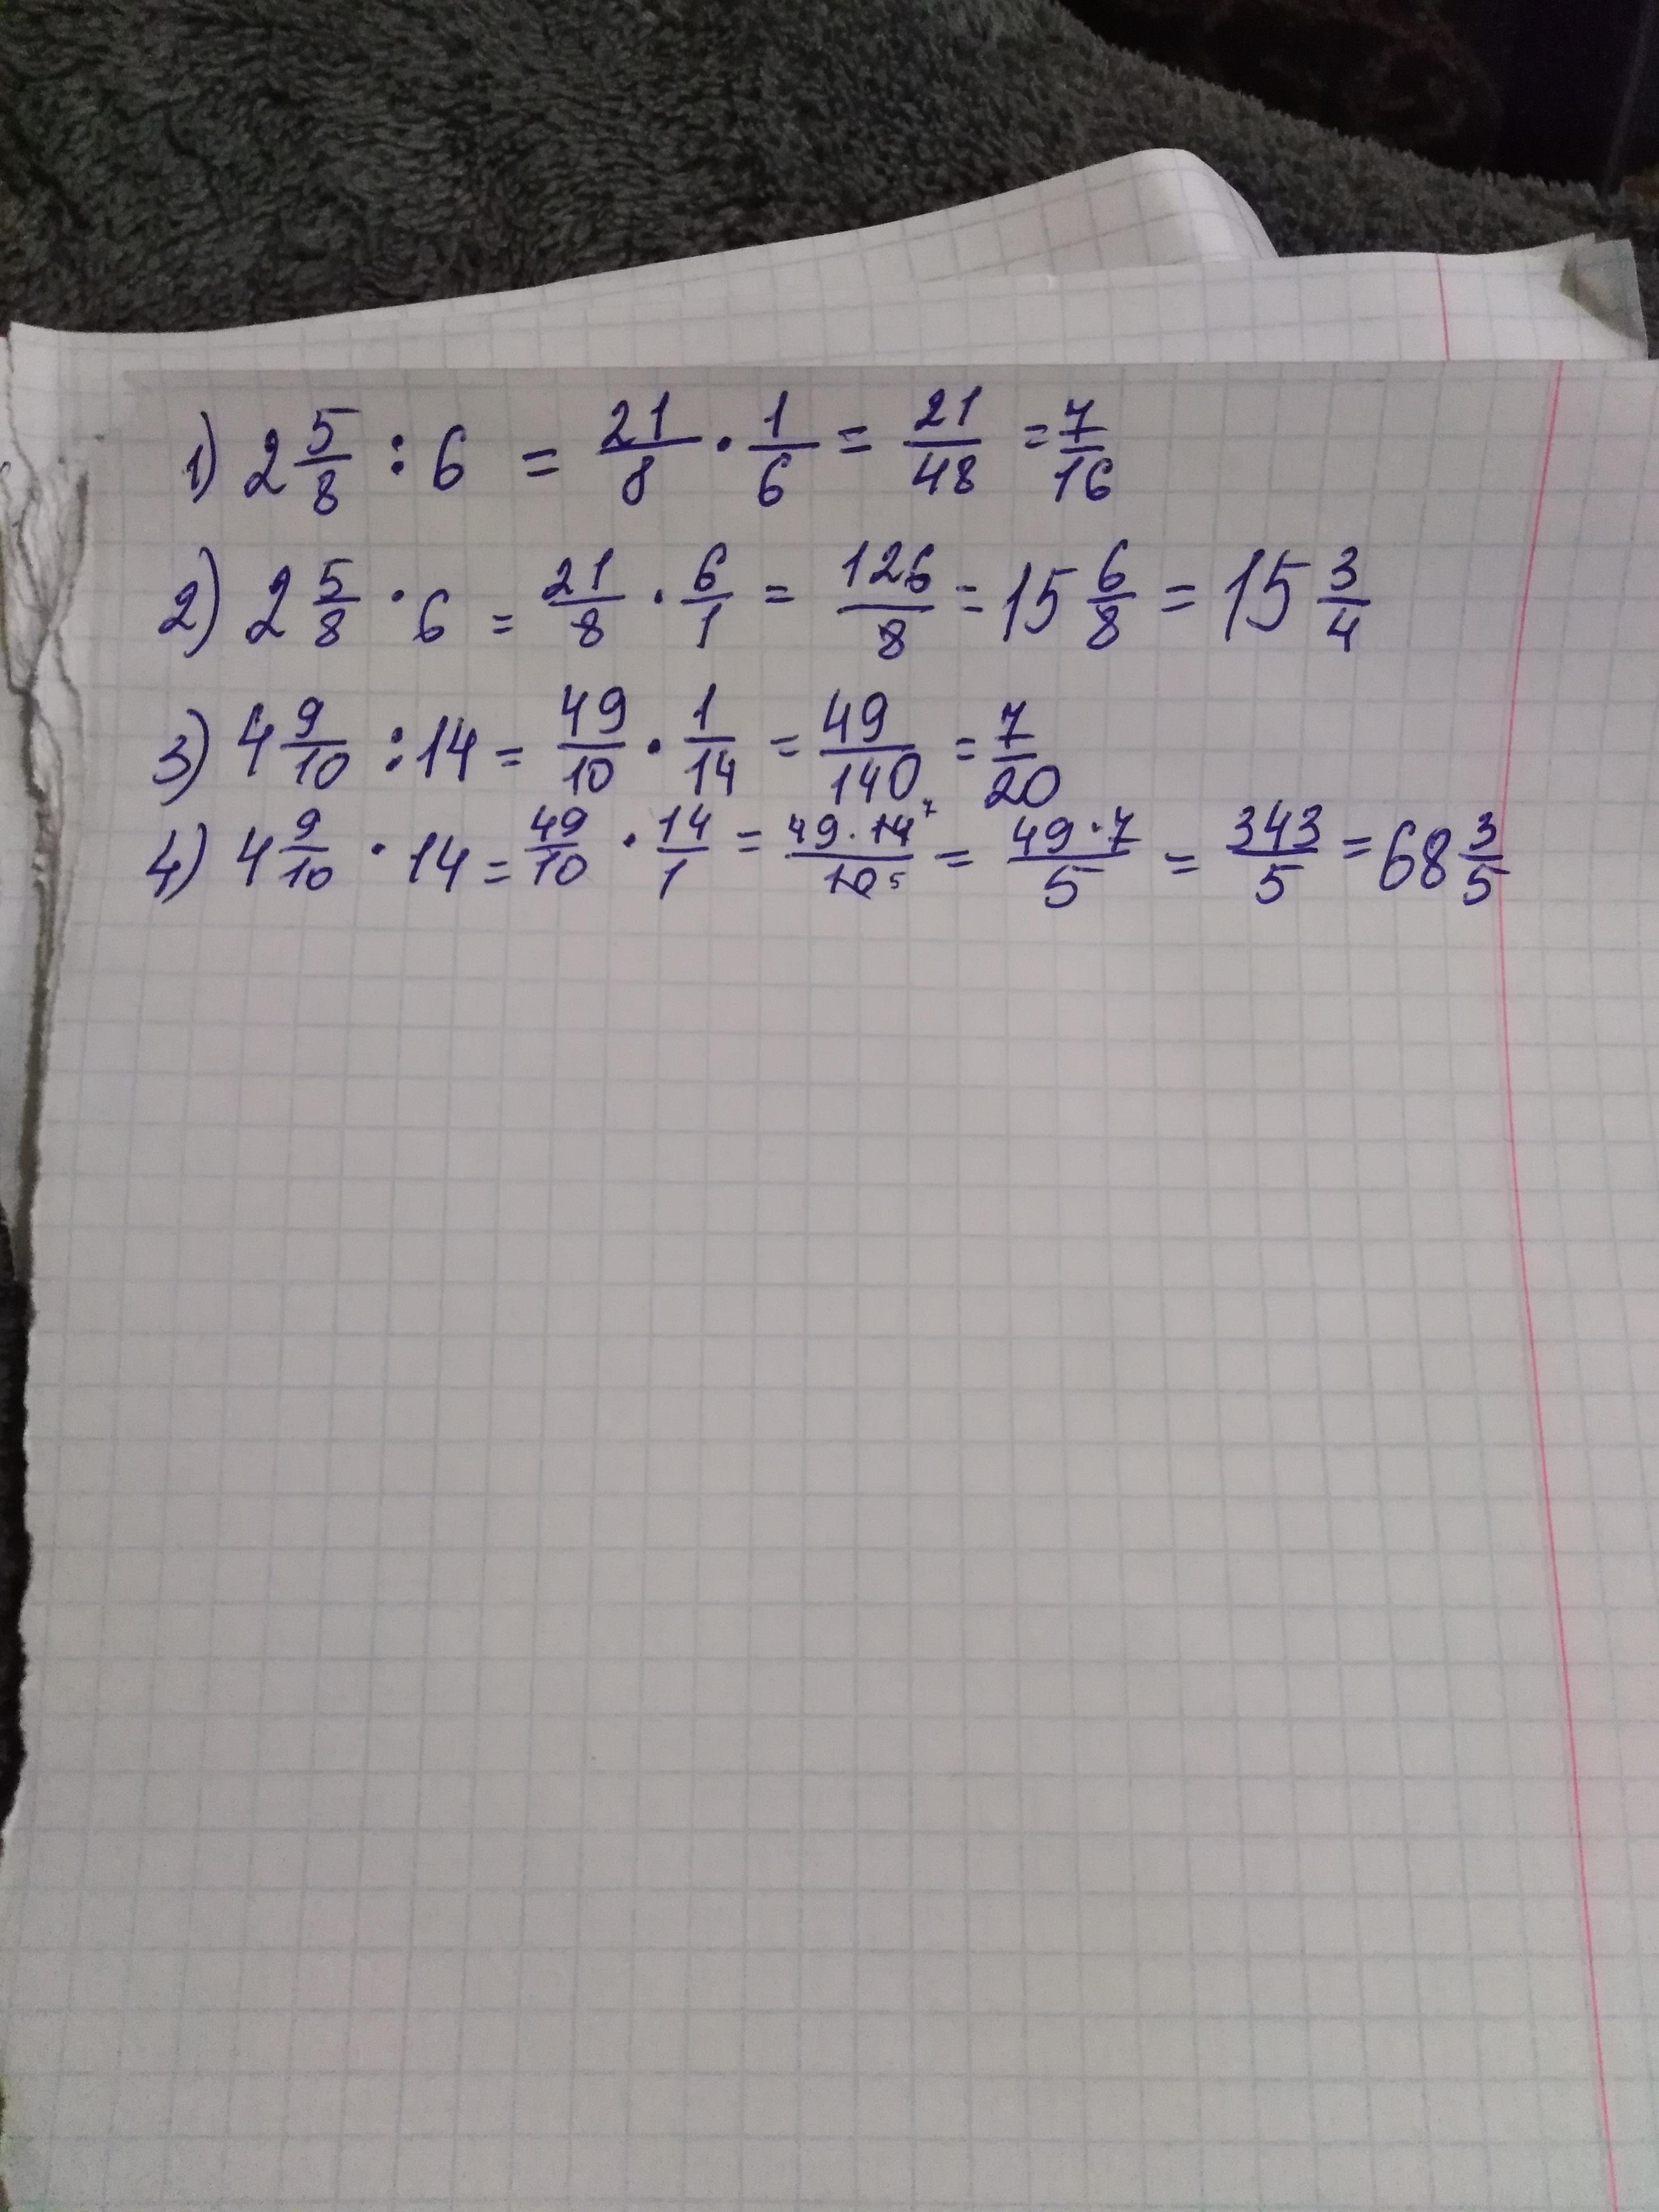 1) 2 5/8 : 6 = 21/8 · 1/6 = 21/48 = 7/16
2) 2 5/8 · 6 = 21/8 · 6/1 = 126/8 = 15 6/8 = 15 3/4
3) 4 9/10 : 14 = 49/10 · 1/14 = 49/140 = 7/20
4) 4 9/10 · 14 = 49/10 · 14/1 = 49 · 14 7/10 5 = 49 · 7/5 = 343/5 = 68 3/5